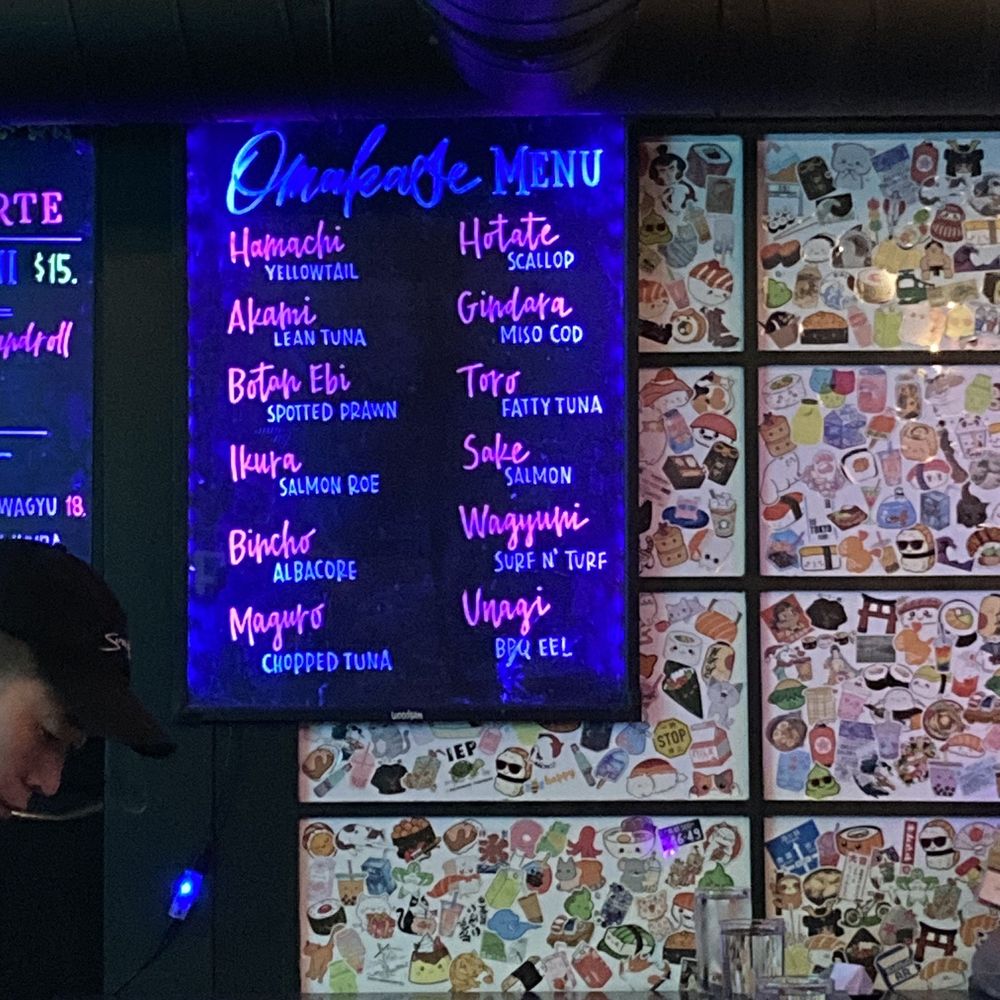 RTE
$15.
WAGYU 18.
Omakase MENU
Hamachi
YELLOWTAIL
Akami
LEAN TUNA
Botan Ebi
SPOTTED PRAWN
Ikura
SALMON ROE
Bincho
ALBACORE
Maguro
CHOPPED TUNA
Hotate
SCALLOP
Gindara
MISO COD
Toro
FATTY TUNA
Sake
SALMON
Wagyuni
SURF N' TURF
Unagi
BBQ EEL
woodsam
STOP
happy
TOKYO